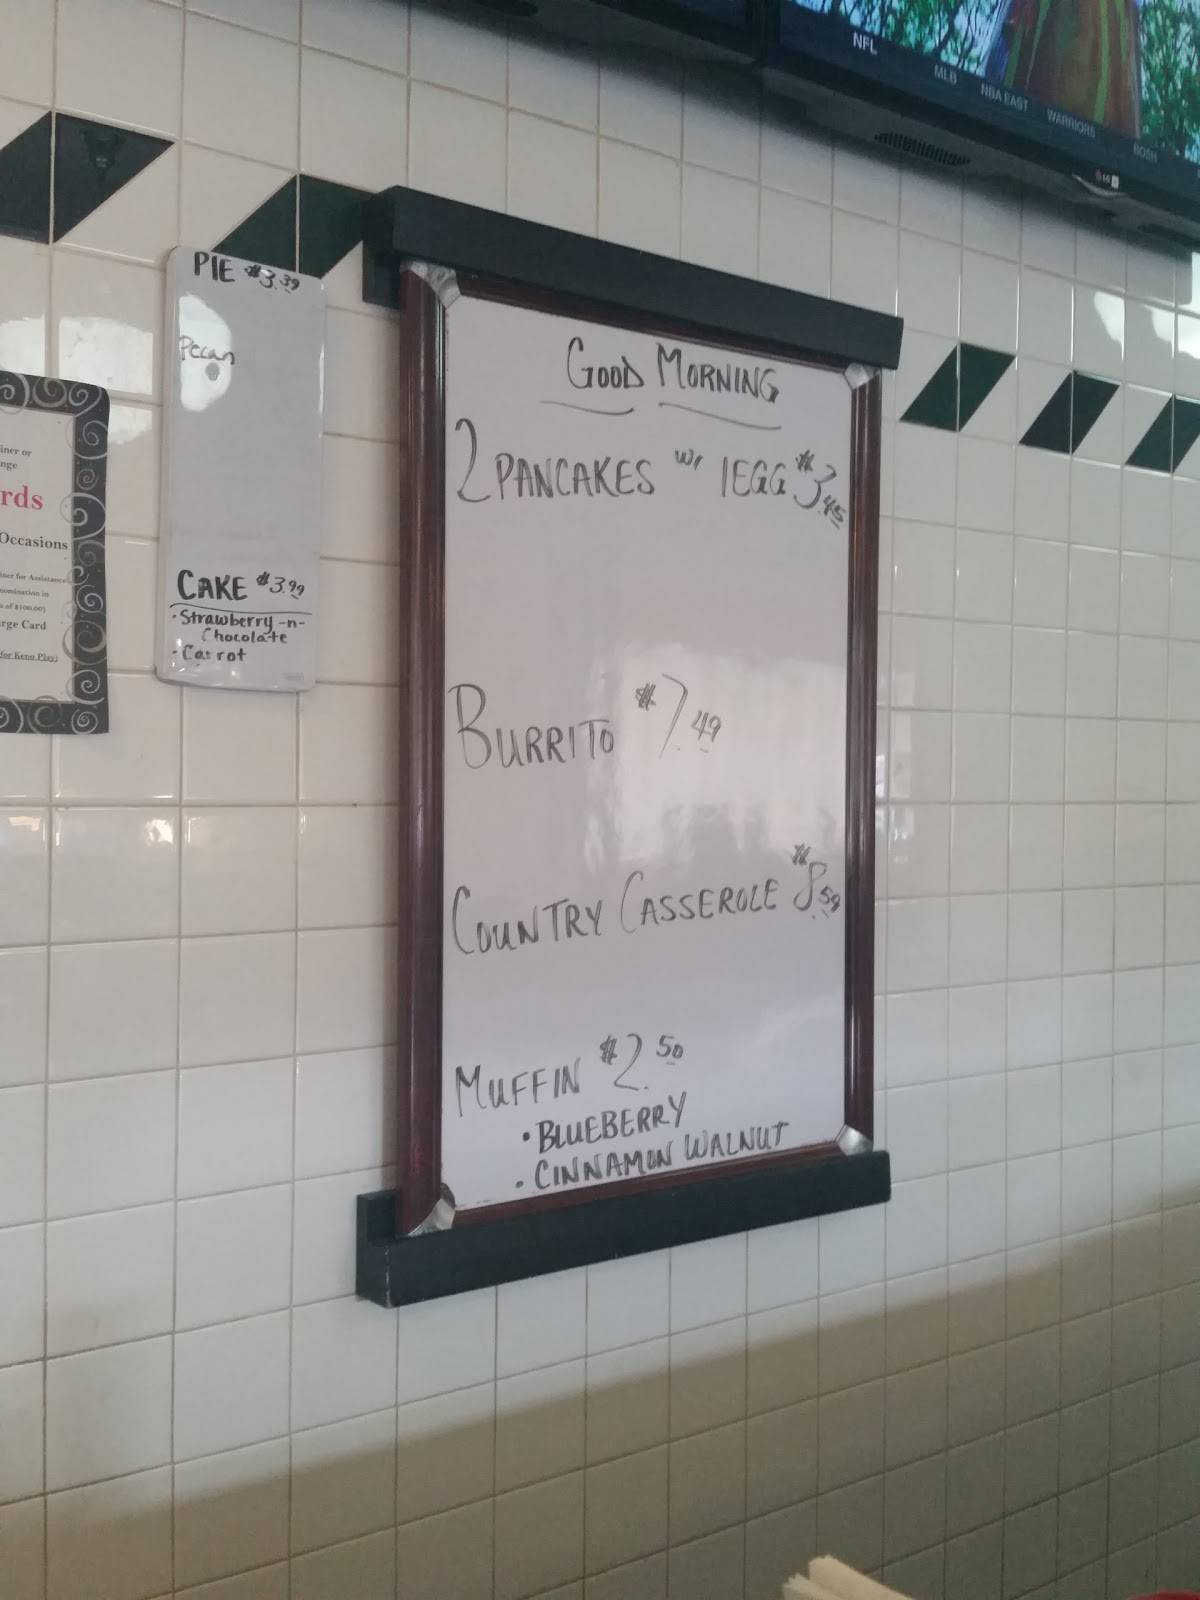 NFL
MLB
NBA EAST
WARRIORS
BOSH
LG
PIE $3.39
Pecan
CAKE $3.99
· Strawberry -n-
Chocolate
· Carrot
iner or
nge
rds
Occasions
iner for Assistance
nomination in
s of $100.00)
rge Card
for Keno Play)
GOOD MORNING
2 PANCAKES w/ 1EGG $3.45
BURRITO $7.49
COUNTRY CASSEROLE $8.59
MUFFIN $2.50
• BLUEBERRY
• CINNAMON WALNUT